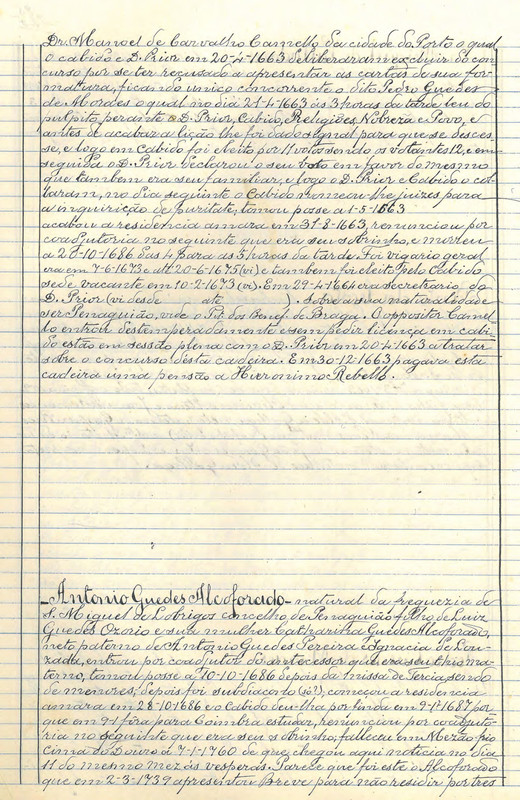 Dr. Manoel de Carvalho Camello da cidade do Porto o qual
o cabido e D. Prior em 20-4-1663 deliberaram excluir do con-
curso por se ter recusado a apresentar as cartas de sua for-
matura, ficando unico concorrente o dito Pedro Guedes
de Moraes o qual no dia 21-4-1663 ás 3 horas da tarde leu do
pulpito perante o D. Prior, Cabido, Religiões, Nobreza e Povo, e
antes de acabar a lição lhe foi dado signal para que se desces-
se, e logo em Cabido foi eleito por 11 votos sendo os votantes 12, e em
seguida o D. Prior declarou o seu voto em favor do mesmo
que tambem era seu familiar, e logo o D. Prior e Cabido o col-
laram, no dia seguinte o Cabido nomeou-lhe juizes para
a inquirição de puritate, tomou posse a 1-5-1663
acabou a residencia amara em 31-8-1663, renunciou por
coadjutoria no seguinte que era seu sobrinho, e morreu
a 20-10-1686 das 4 para as 5 horas da tarde. Foi vigario geral
era em 7-6-1673 e até 20-6-1675 (vi) e tambem foi eleito pelo Cabido
sede vacante em 10-2-1673 (vi). Em 29-4-1664 era secretario do
D. Prior (vi desde até ). Sobre a sua naturalidade
ser Penaguião, vide o Tit. dos Benef. de Braga. O oppositor Camel-
lo entrou destemperadamente e sem pedir licença em cabi-
do estão em sessão plena com o D. Prior em 20-4-1663 a tratar
sobre o concurso desta cadeira. Em 30-12-1663 pagava esta
cadeira uma pensão a Hieronimo Rebello.
Antonio Guedes Alcoforado - natural da freguezia de
S. Miguel de Lobrigos concelho de Penaguião filho de Luiz
Guedes Ozorio e sua mulher Catharina Guedes Alcoforado,
neto paterno de Antonio Guedes Pereira e Ignacia de Lou-
zada, entrou por coadjutor do antecessor que era seu thio ma-
terno, tomou posse a 70-10-1686 depois da missa de Tercia, sendo
de menores, depois foi subdiacono (vi?), começou a residencia
amara em 28-10-1686 e o Cabido deu-lha por finda em 9-1-1687 por
que em 9-1 fôra para Coimbra estudar, renunciou por coadjuto-
ria no seguinte que era seu sobrinho, falleceu em Mezão-frio
Cima do Douro a 7-1-1760 de que chegou aqui noticia no dia
11 do mesmo mez ás vesperas. Parece que foi este o Alcoforado
que em 2-3-1739 apresentou Breve para não residir por tres